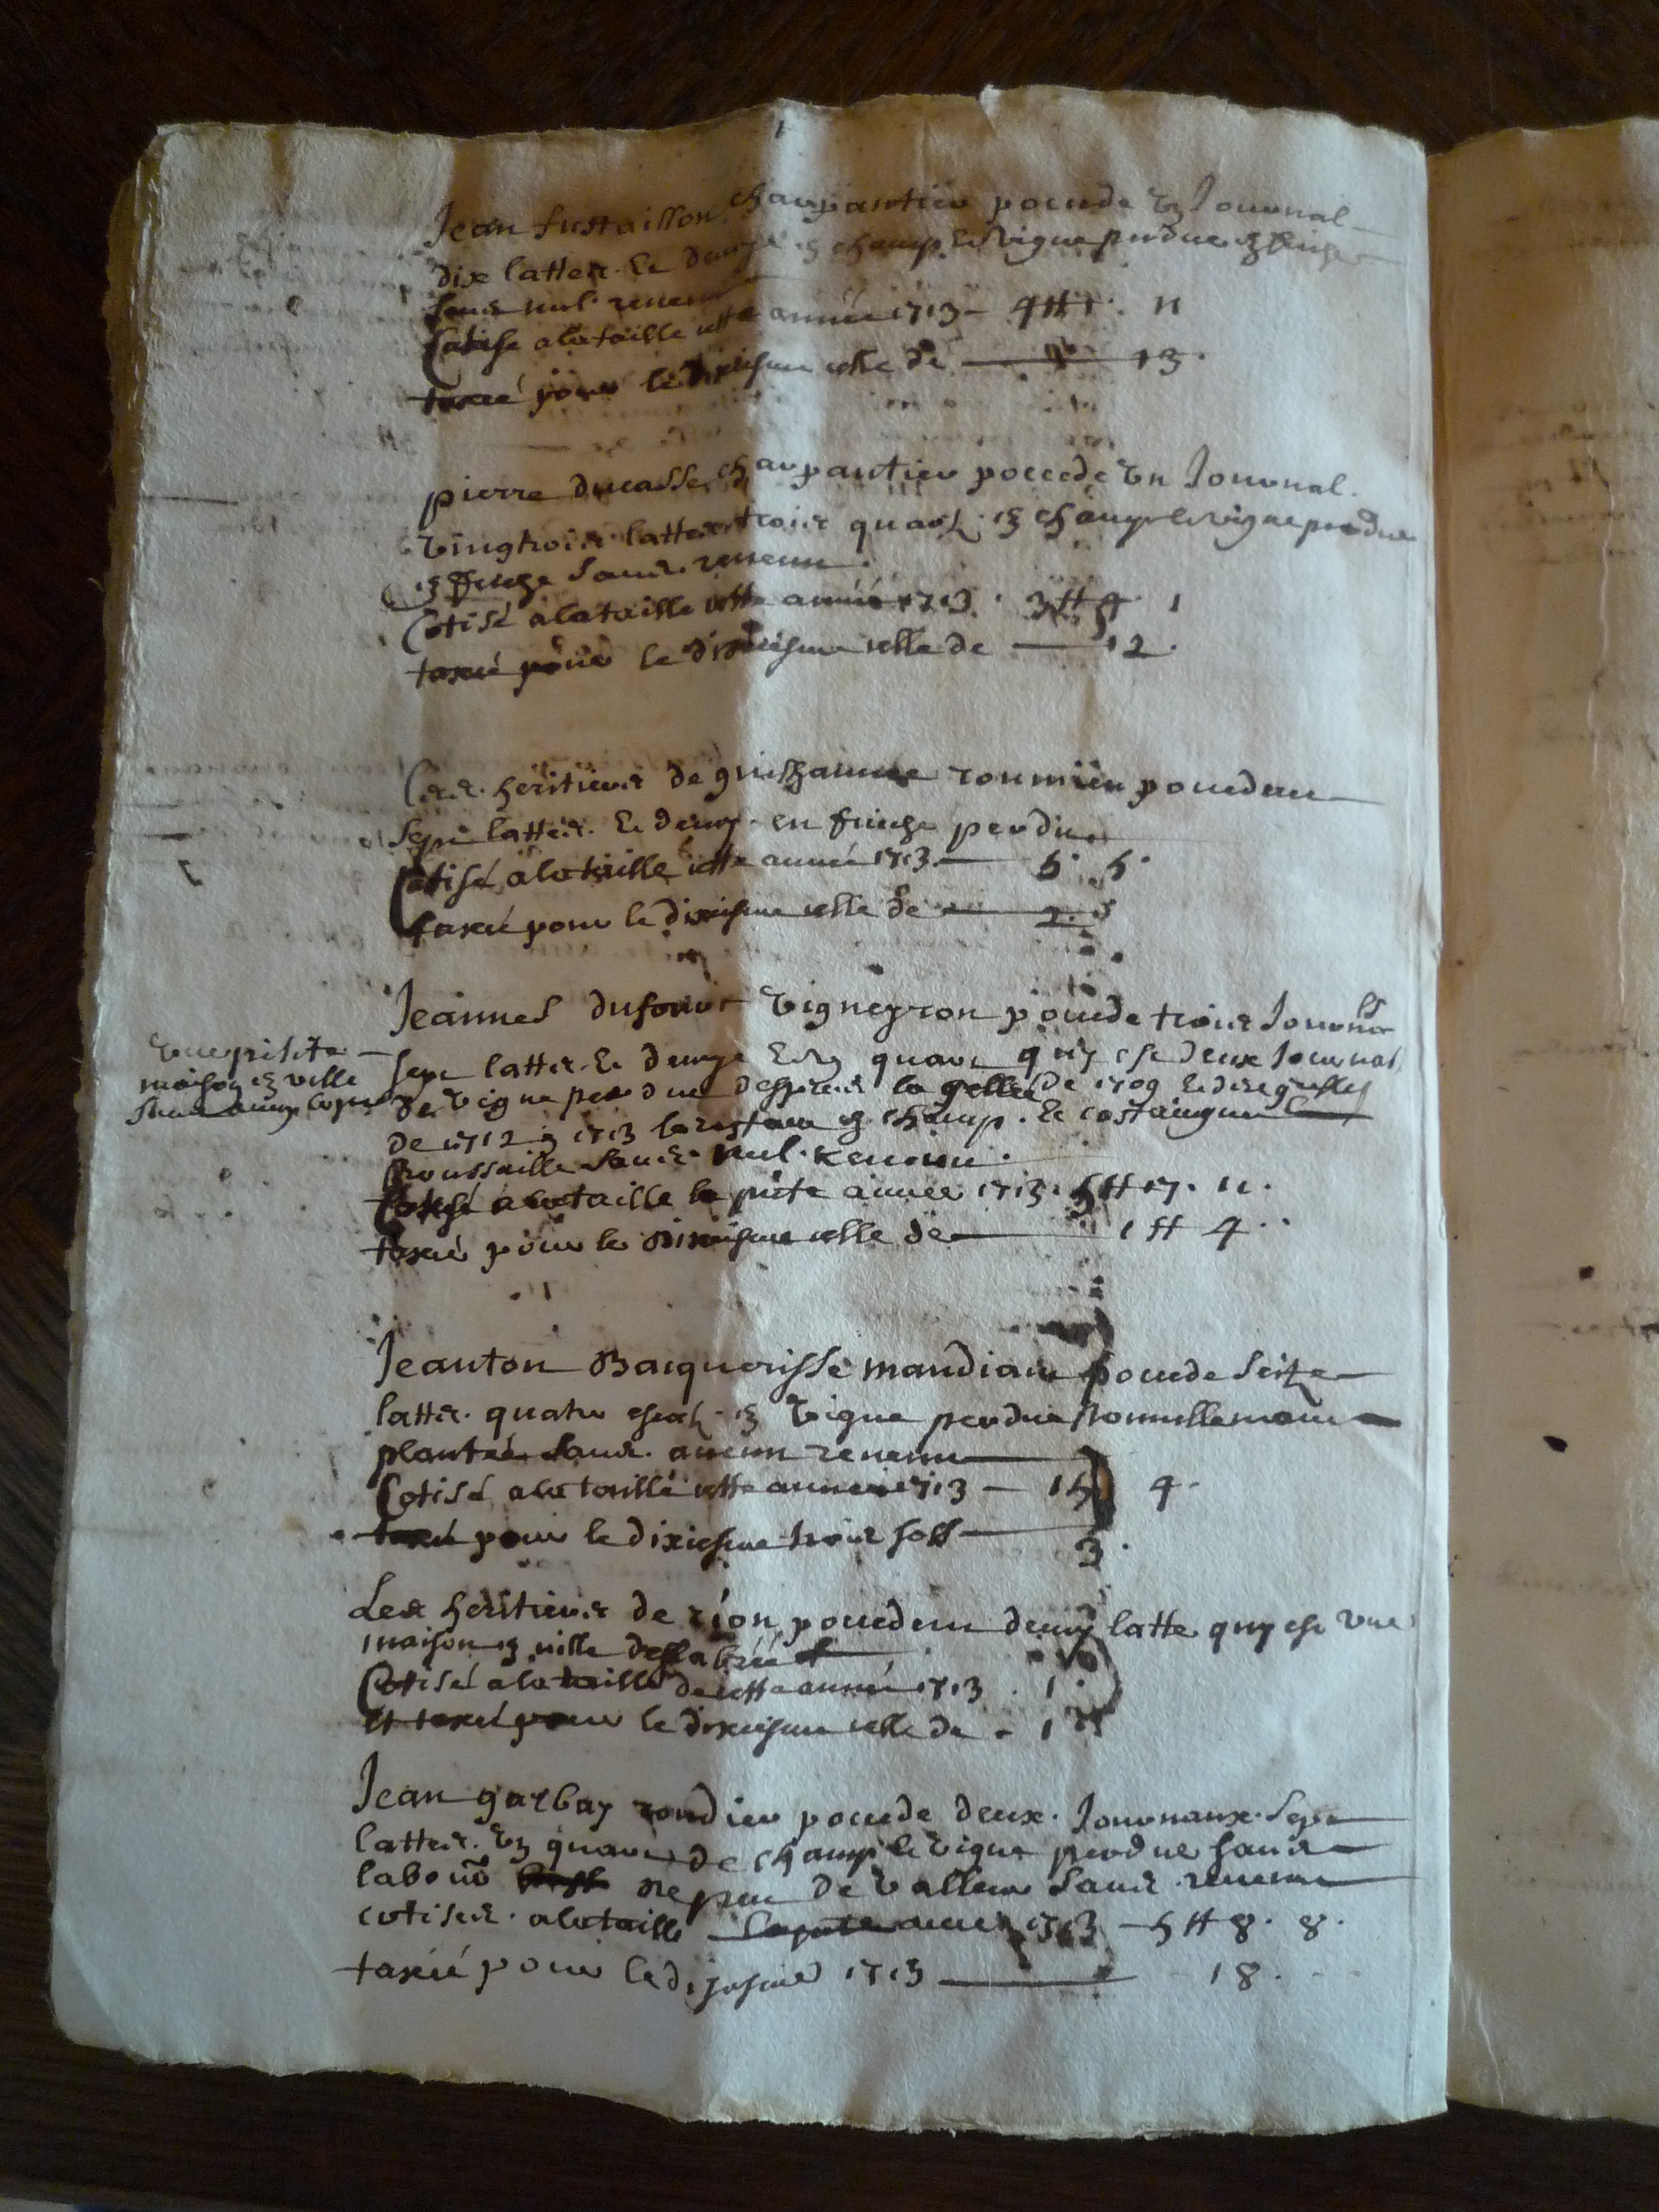 Jean fustaillon charpantier pocede un Journal
dix lattes Et demye en champ Et vigne perdue en friche
sans nul revenu
Cotise a la taille cette année 1713 - 4 tt 1. 11
taxé pour le dixiesme celle de 13.
pierre ducasse charpantier poccede un Journal
vingtrois lattes trois quarts en champ et vigne perdue
en friche sans revenu.
Cotisé a la taille cette année 1713. 3 tt 1
taxé pour le dixiesme celle de 12.
Les heritiers de guilhaume roumieu poceden
sept lattes Et demy en friche perdue
Cotisé a la taille cette année 1713 5. 5.
taxé pour le dixiesme celle de 2. 5
Jeannes dufour vigneyron pocede trois Journaux
sept lattes Et demye Et un quart quy est deux Journal
de vigne perdue despuis la gellée de 1709 Et de gresles
de 1712 1713 le restan en champ. Et
broussaille sans nul revenu.
Cotisé a la taille la pnte année 1713. 5 tt 17. 11.
taxé pour le dixiesme celle de 1 tt 4.
une petite
maison en ville
sans aucun
Jeanton Bacquerisse mandian pocede seitze
lattes quatre escats en vigne perdue nouvellemen
plantée sans aucun revenu
Cotisé a la taille cette année 1713 - 15 4.
taxé pour le dixiesme trois sols 3.
Les heritiers de rion poceden demy latte quy est une
maison en ville deslabrée
Cotisé a la taille de cette année 1713. 1.
Et taxé pour le dixiesme celle de - 1
Jean garbay pocede deux Journaux sept
lattes un quart de champ et vigne perdue sans
labour de peu de valleur sans revenu
cotisés a la taille la pnte année 1713 - 5 tt 8. 8.
taxé pour le dixiesme 1713 18.